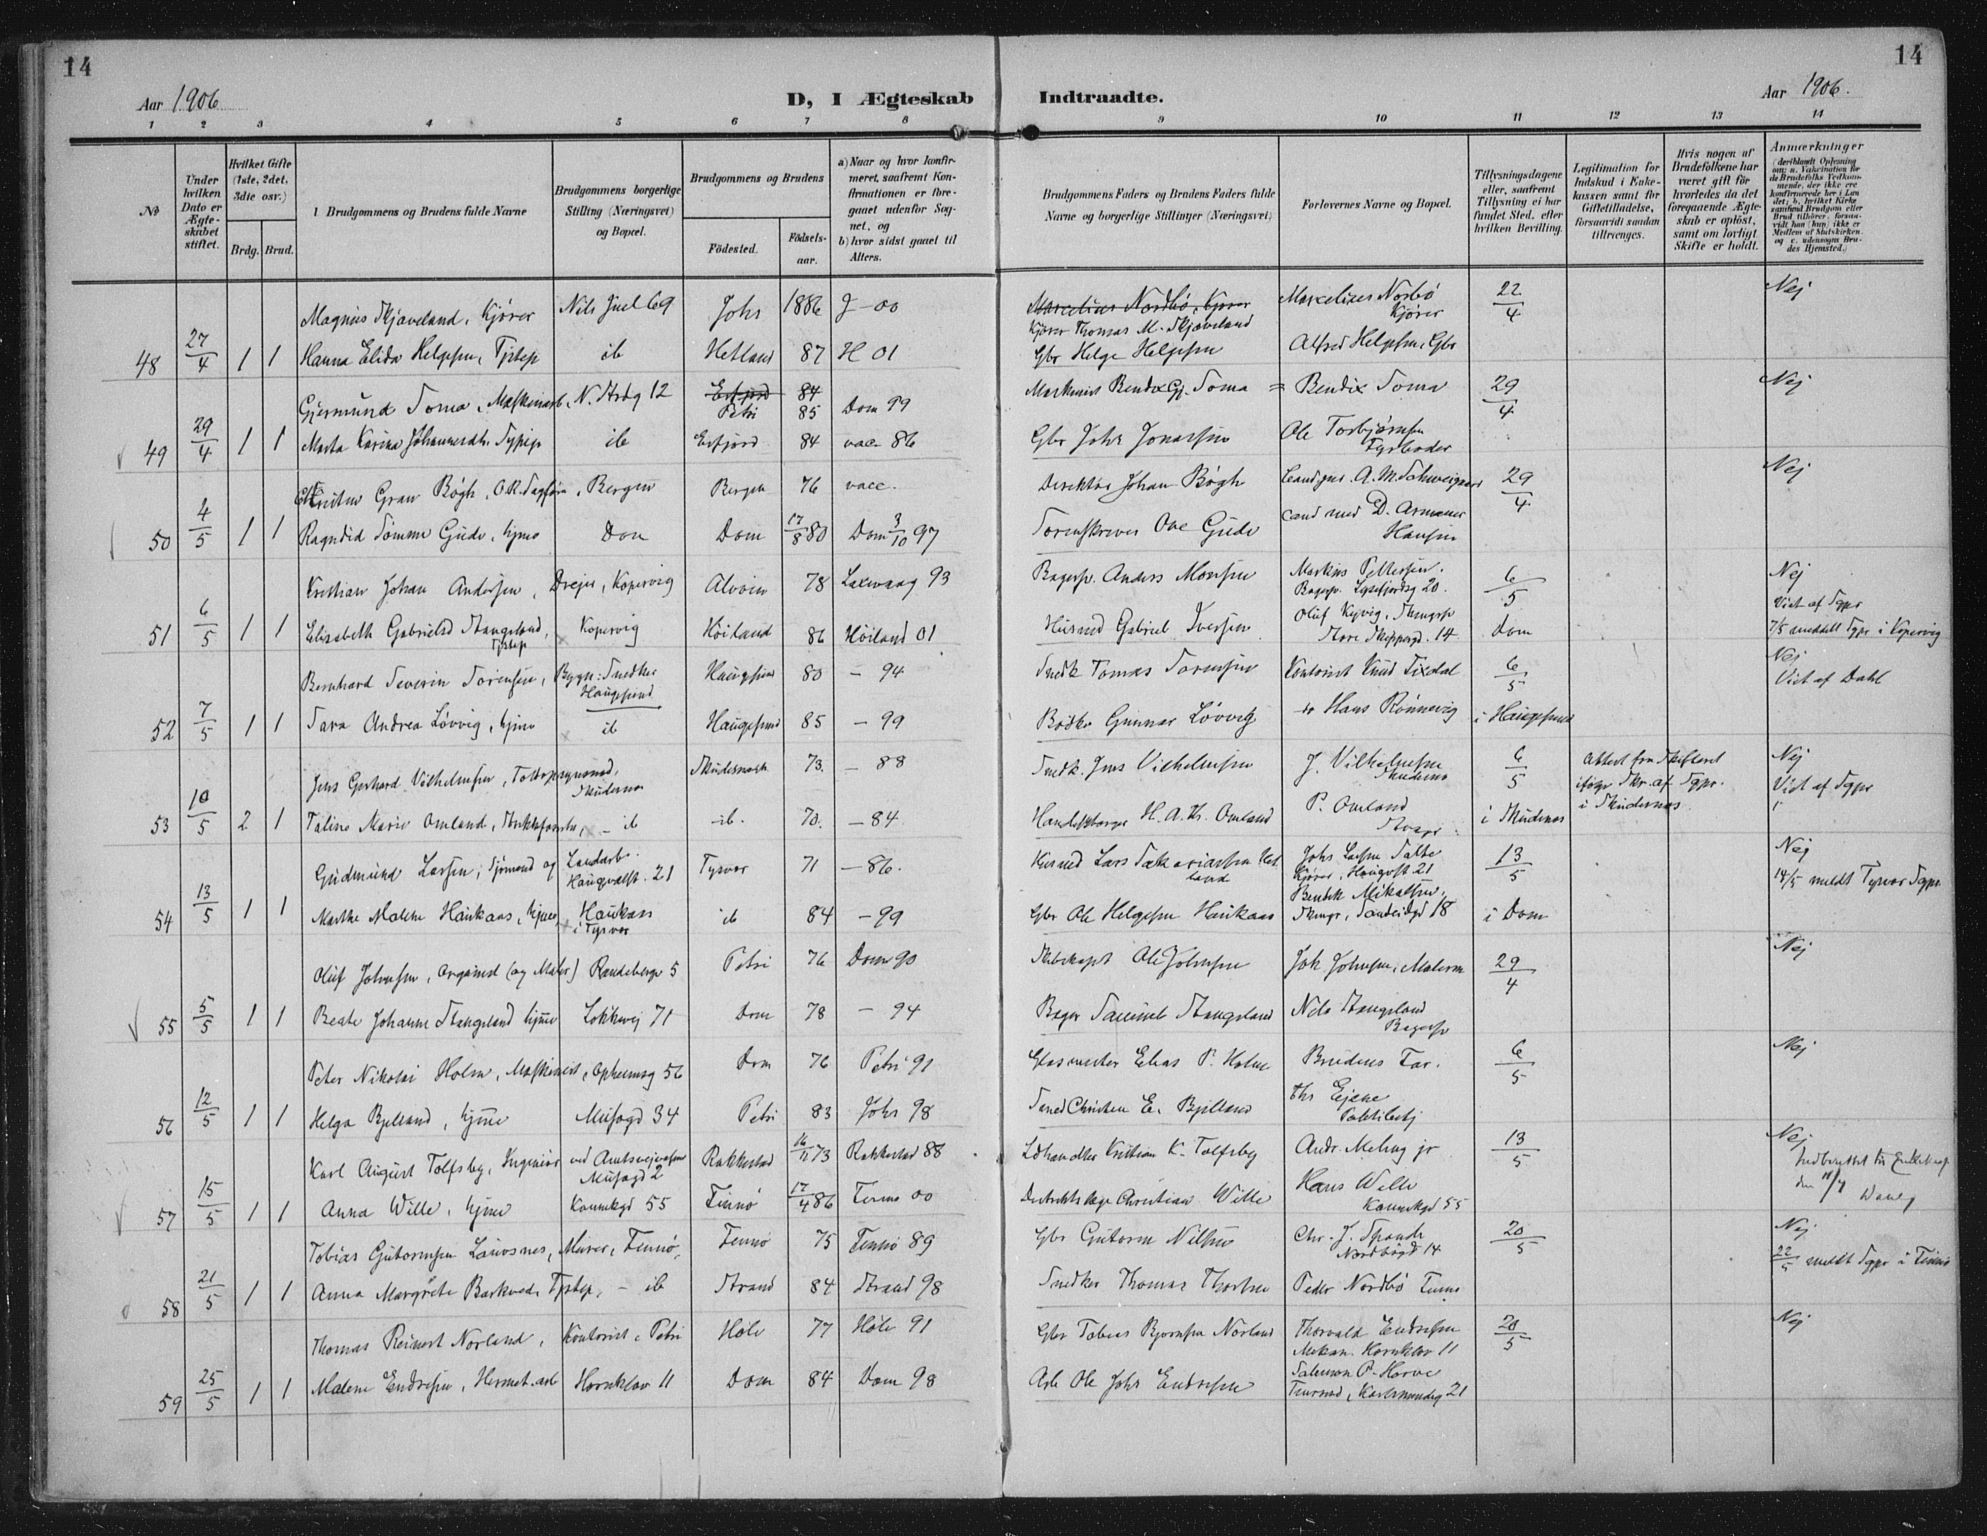 14
14
Aar 1906
D, I Ægteskab Indtraadte.
Aar 1906.
1 2 3 4 5 6 7 8 9 10 11 12 13 14
No
Under hvilken Dato er Ægteskabet stiftet.
Hvilket Gifte (1ste, 2det, 3die osv.)
Brdg. Brud.
1 Brudgommens og Brudens fulde Navne
Brudgommens borgerlige Stilling (Næringsvei) og Bopæl.
Brudgommens og Brudens
Fødested. Fødselsaar.
a) Naar og hvor konfirmeret, saafremt Konfirmationen er foregaaet udenfor Sognet, og
b) hvor sidst gaaet til Alters.
Brudgommens Faders og Brudens Faders fulde Navne og borgerlige Stillinger (Næringsvei)
Forlovernes Navne og Bopæl.
Tillysningsdagene eller, saafremt Tillysning ei har fundet Sted, efter hvilken Bevilling.
Legitimation for Indskud i Enkekassen samt for Giftetilladelse, forsaavidt saadan tiltrænges.
Hvis nogen af Brudefolkene har været gift før hvorledes da det foregaaende Ægteskab er opløst, samt om lovligt Skifte er holdt.
Anmærkninger
Magnus Skjaveland, Kjører Nils Juel 69 Johs 1886 J-00 Marcelius Nordbø, Kjører Marcelius Norbø Kjører 22/4 Nej
Kjører Thomas M. Skjaveland
48 27/4 1 1 Hanna Elida Helgesen, Tjstep ib Hetland 87 H 01 Gbr Helge Helgesen Alfred Helgesen, Gbr
Gjermund Soma, Maskinarb, N. Strdg 12 Erfjord 84 Petri 85 Dom 99 Maskinist Bendix Gj. Soma = Bendix Soma 29/4 Nej
49 29/4 1 1 Marta Karina Johannesdtr. Tjpige ib Erfjord 84 vacc 86 Gbr Johs Jonassen Ole Torbjørnsen Fyrbøder
Kristen Gran Bøgh, O.R. Sagfører, Bergen Bergen 76 vacc. Direktør Johan Bøgh Cand jur. A. M. Schweigaard 29/4 Nej
50 4/5 1 1 Ragndid Sømme Gude, hjme Dom Dom 17/8 80 Dom 3/10 97 Sorenskriver Ove Gude cand med D. Armauer Hansen
Kristian Johan Andersen, Drejer, Kopervig Alvøen 78 Laxevaag 93 Bagersv. Anders Monsen Martius Pettersen. Bagersv. Lysefjordsg 20. 6/5 Nej
Vist af Sgpr
51 6/5 1 1 Elisabeth Gabrielsd Stangeland, Tjstep Kopervig Høiland 86 Høiland 01 Husmd Gabriel Iversen Oluf Kyvig, Skingr Store Skippergd. 14 Dom 7/5 meddelt Sgpr i Kopervig
Bernhard Severin Sørensen, Bygn: Snedker Haugesund Haugesund 80 – 94 Snedk Tomas Sørensen Kontorist Knud Tixdal 6/5 Nej
Vist af Dahl
52 7/5 1 1 Sara Andrea Løvvig, hjme ib Haugesund 85 – 99 Bødker Gunnar Løvvig do Hans Rønnevig i Haugesund
Jens Gerhard Vilhelmsen, Toldopsynsmd, Skudesnes Skudesnes 73. – 88 Snedk. Jens Vilhelmsen J. Vilhelmsen Skudenes 6/5 Attest fra Skifteret ifølge Skr. af Sgpr. i Skudesnæs Nej
Vist af Sgpr
53 10/5 2 1 Taline Marie Omland, – ib – ib. 70. – 84 Handelsborger H. A. Kr. Omland P. Omland i Skudenes
Gudmund Larsen, Sjømand og Landarb. Haugvaldst. 21 Tysvær 71 – 86. Husmd Lars Sakariassen Johs Larsen Salte Kjører, Haugvst 21 13/5 Nej
14/5 meldt Tysvær Sgpr
54 13/5 1 1 Marthe Malene Haukaas, hjme, Haukaas i Tysvær ib 84 – 99 Gbr Ole Helgesen Haukaas Bendik Mikalsen, Skingr, Sandeidgd 18 i Dom
Oluf Johnsen, Organist (og Maler) Randeberge 5 Petri 76 Dom 90 Skibskapt Ole Johnsen Joh Johnsen, Malerm 29/4 Nej
55 5/5 1 1 Beate Johanne Stangeland hjme Løkkevej 71 Dom 78 – 94 Bager Samuel Stangeland Nils Stangeland Bagersv
Peter Nikolai Holm, Maskinist, Opheimsg 56 Dom 76 Petri 91 Glasmester Elias P. Holm Brudens Far. 6/5 Nej
56 12/5 1 1 Helga Bjelland, hjme Musægd 34 Petri 83 Johs 98 Smed Christen E. Bjelland Chr Ejene Politibetj
Karl August Tolfsby, Ingeniør ved Amtsvejvæsen Musægd 2 Rakkestad 16/11 73 Rakkestad 88 Ldhandler Kristian K. Tolfsby Andr. Meling jr 13/5 Nej
57 15/5 1 1 Anna Wille, hjme Kannikgd 55 Finnø 17/4 86 Finnø 00 Distriktslæge Christian Wille Hans Wille Kannikgd 55
Tobias Gutormsen Lausnes, Murer, Finnø, Finnø 75 Finnø 89 Gbr Gutorm Nilsen Chr. J. Spande Nordbøgd 14 20/5 Nej
22/5 meldt Sgpr i Finnø
58 21/5 1 1 Anna Margrete Barkved, Tjstep, – ib Strand 84 Strand 98 Snedker Thomas Thorsen Peder Nordbø Finnø
Thomas Reinert Norland, Kontorist, Petri Høle 77 Høle 91 Gbr Tobias Bjørnsen Norland Thorvald Endresen Mekan. Hornklov 11 20/5 Nej
59 25/5 1 1 Malene Endresen, Hermet.arb Hornklov 11 Dom 84 Dom 98 Arb Ole Johs Endresen Salemon P. Horve Tinsmd, Karlsmindeg 21